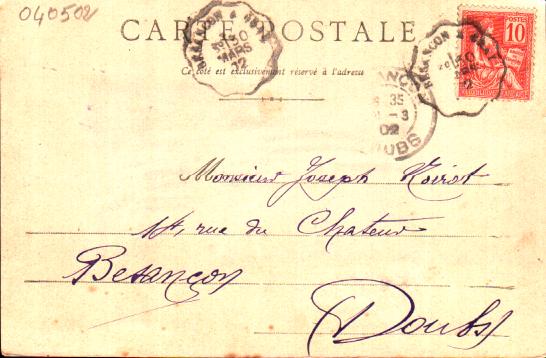 040502
CARTE POSTALE
Ce côté est exclusivement réservé à l'adresse
BESANÇON
30
MARS
02
POSTES
10
BESANÇON
30
35
3
02
DOUBS
Monsieur Joseph Noirot
14, rue du Chateur
Besançon
Doubs